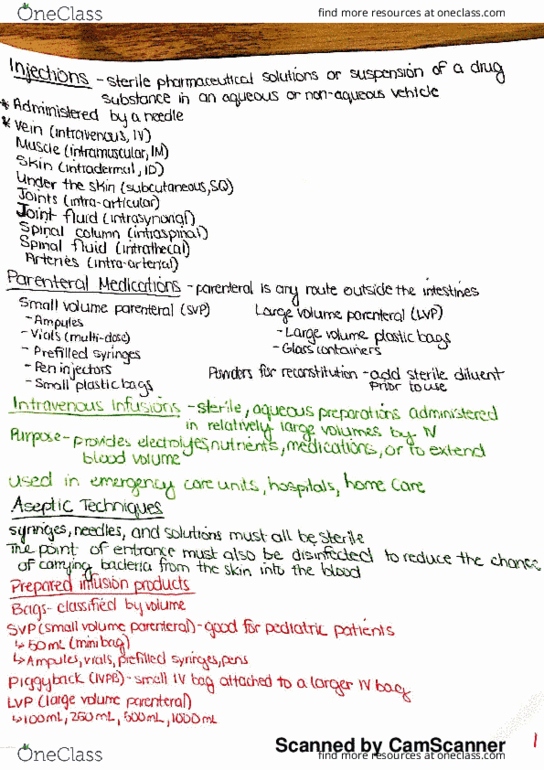 OneClass
find more resources at oneclass.com
Injections - sterile pharmaceutical solutions or suspension of a drug
substance in an aqueous or non-aqueous vehicle
* Administered by a needle
* Vein (intravenous, IV)
Muscle (intramuscular, IM)
Skin (intradermal, ID)
Under the skin (subcutaneous, SQ)
Joints (intra-articular)
Joint fluid (intrasynonal)
Spinal column (intraspinal)
Spinal fluid (intrathecal)
Arteries (intra-arterial)
Parenteral Medications - parenteral is any route outside the intestines
Small volume parenteral (SVP)
- Ampules
- Vials (multi-dose)
- Prefilled syringes
- Pen injectors
- Small plastic bags
Large volume parenteral (LVP)
- Large volume plastic bags
- Glass containers
Powders for reconstitution - add sterile diluent
prior to use
Intravenous Infusions - sterile, aqueous preparations administered
in relatively large volumes by IV
Purpose - provides electrolytes, nutrients, medications, or to extend
blood volume
used in emergency care units, hospitals, home care
Aseptic Techniques
syringes, needles, and solutions must all be sterile
The point of entrance must also be disinfected to reduce the chance
of carrying bacteria from the skin into the blood
Prepared infusion products
Bags - classified by volume
SVP (small volume parenteral) - good for pediatric patients
↳ 50mL (mini bag)
↳ Ampules, vials, prefilled syringes, pens
Piggyback (IVPB) - small IV bag attached to a larger IV bag
LVP (large volume parenteral)
↳ 100mL, 250mL, 500mL, 1000mL
1
Scanned by CamScanner
OneClass
find more resources at oneclass.com